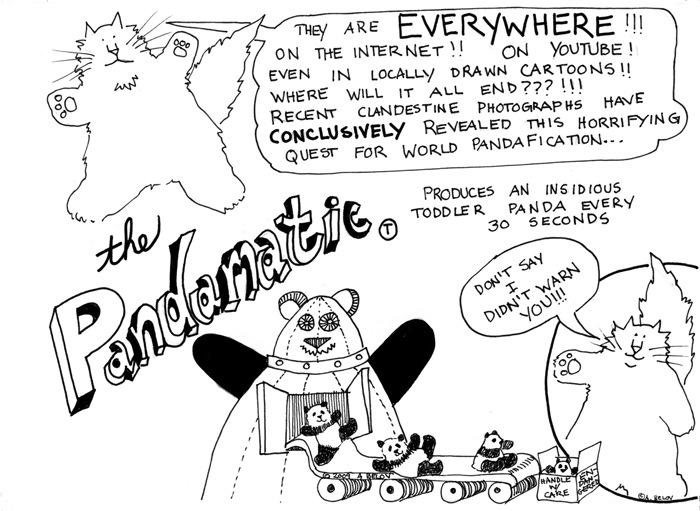 THEY ARE EVERYWHERE!!!
ON THE INTERNET!! ON YOUTUBE!
EVEN IN LOCALLY DRAWN CARTOONS!!
WHERE WILL IT ALL END???!!!
RECENT CLANDESTINE PHOTOGRAPHS HAVE
CONCLUSIVELY REVEALED THIS HORRIFYING
QUEST FOR WORLD PANDAFICATION...
the
Pandamatic T
PRODUCES AN INSIDIOUS
TODDLER PANDA EVERY
30 SECONDS
DON'T SAY
I
DIDN'T WARN
YOU!!!
© 2009 A BELOV
HANDLE
W/
CARE
EN-
DAN
GERED
©A. BELOV